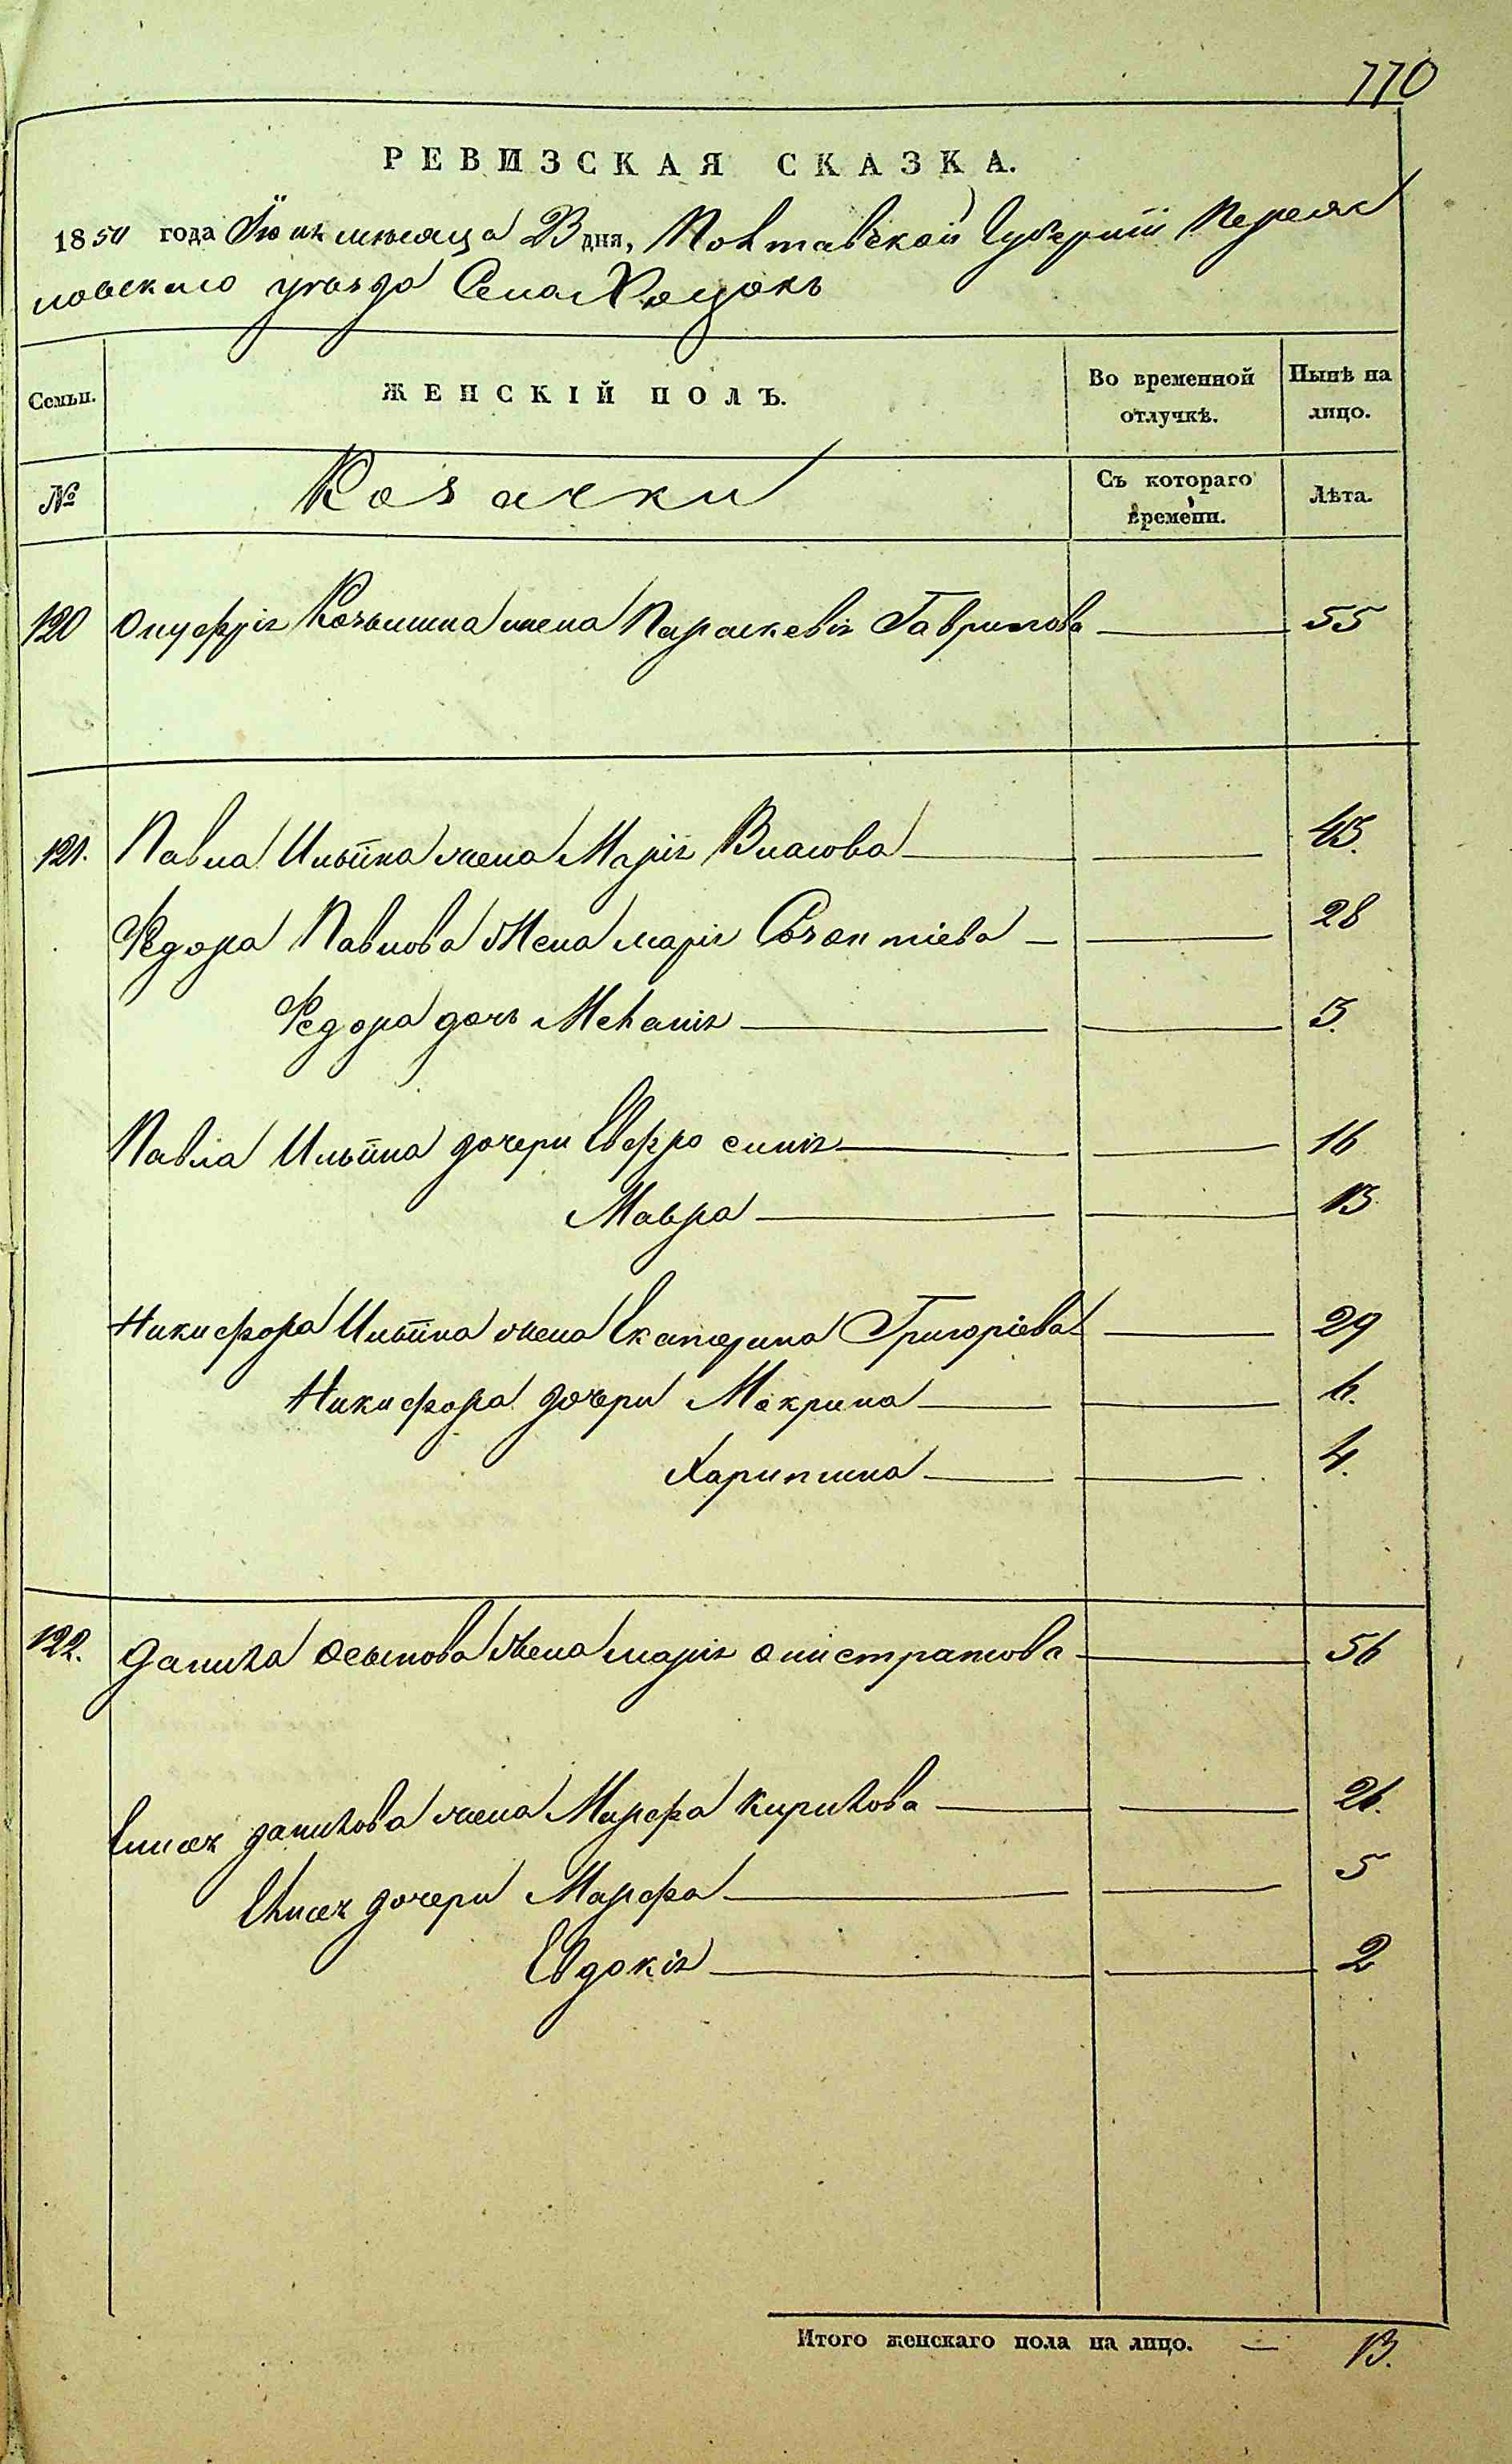 110
РЕВИЗСКАЯ СКАЗКА.
1850 года Іюня месяца 23 дня, Полтавской Губерніи Переяс
ловского уезда Села Хоцокъ
Семьи.
ЖЕНСКІЙ ПОЛЪ.
Во временной отлучкѣ.
Нынѣ на лицо.
№
Козачки
Съ котораго времени.
Лѣта.
120 Онуфрія жена Параскевія Гаврилова 55
121. Павла Ильина жена Марія Власова 45.
Федора Павлова жена марія 28
Федора дочь Меланія 5.
Павла Ильина дочери Евфросинія 16
Мавра 13
Никифора Ильина жена Екатерина Григоріева 29
Никифора дочери Макрина 6.
Харитина 4.
122. Данила Осыпова жена марія Онистратова 56
Елисея данилова жена Марфа Кирилова 26.
Елисея дочери Марфа 5
Евдокія 2
Итого женскаго пола на лицо. — 13.